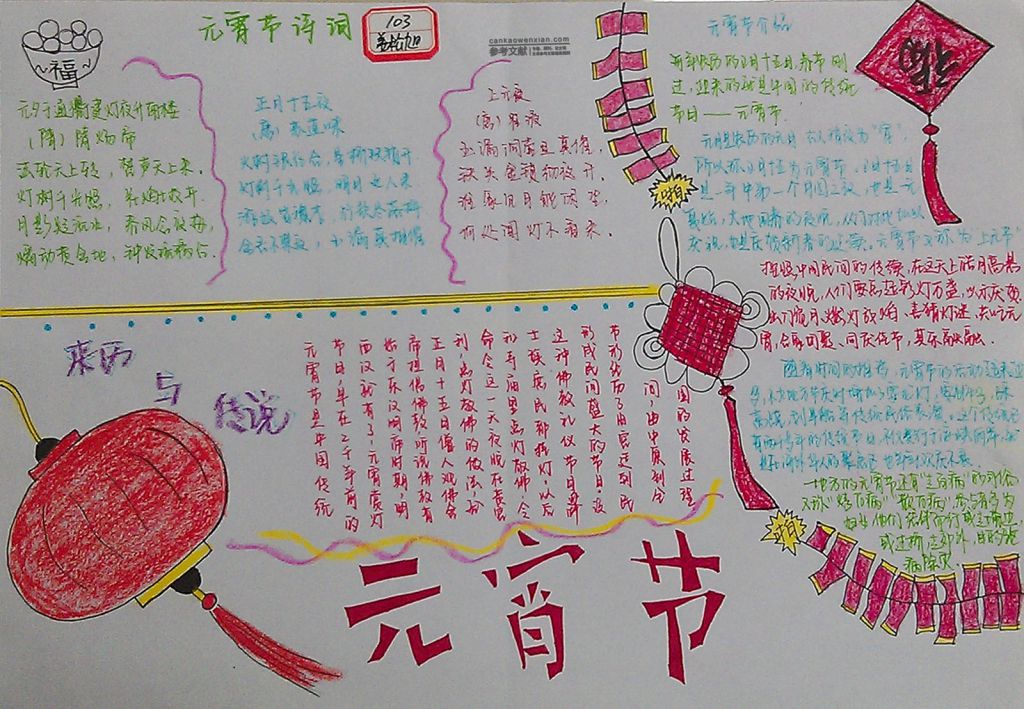 元宵节诗词
103
福
cankaowenxian.com
参考文献
元夕于通衢建灯夜升南楼
(隋)隋炀帝
法轮天上转,梵声天上来。
灯树千光照,花焰七枝开。
月影疑流水,春风含夜梅。
燔动黄金地,钟发琉璃台。
正月十五夜
火树银花合,星桥铁锁开。
灯树千光照,明月逐人来
行歌尽落梅
金吾不禁夜,玉漏莫相催
上元夜
(唐)崔液
玉漏铜壶且莫催,
铁关金锁彻夜开,
谁家见月能闲坐,
何处闻灯不看来。
元宵节介绍
每年农历的正月十五日,春节刚
过,迎来的就是中国的传统
节日——元宵节。
元月是农历的元月,古人称夜为"宵",
所以称正月十五为元宵节。正月十五日
是一年中第一个月圆之夜,也是一元
复始,大地回春的夜晚,人们对此加以
庆祝,也是庆贺新春的延续。元宵节又称为"上元节"
按照中国民间的传统,在这天上皓月高悬
的夜晚,人们要点起彩灯万盏,以示庆贺
出门赏月、燃灯放焰、喜猜灯谜、共吃元
宵,合家团聚、同庆佳节,其乐融融。
随着时间的推移,元宵节的活动越来越
多,不少地方节庆时增加了耍龙灯、耍狮子、踩
高跷、划旱船
一地方的元宵节还有"走百病"的习俗
又称"烤百病""散百病"参与者多为
妇女他们结伴而行或走墙边
或过桥、走郊外,目的
病除灾。
啪
啪
来历
与
传说
元宵节是中国传统
节日,早在2千年前的
西汉就有了,元宵赏灯
始于东汉明帝时期,明
帝提倡佛教,听说佛教有
正月十五日僧人观佛舍
利,点灯敬佛的做法,就
命令这一天夜晚在皇宫
和寺庙里点灯敬佛,令
士族庶民都挂灯。以后
这种佛教礼仪节日逐渐
形成民间盛大的节日。该
由宫廷到民
间,由中原到全
国的发展过程
元宵节